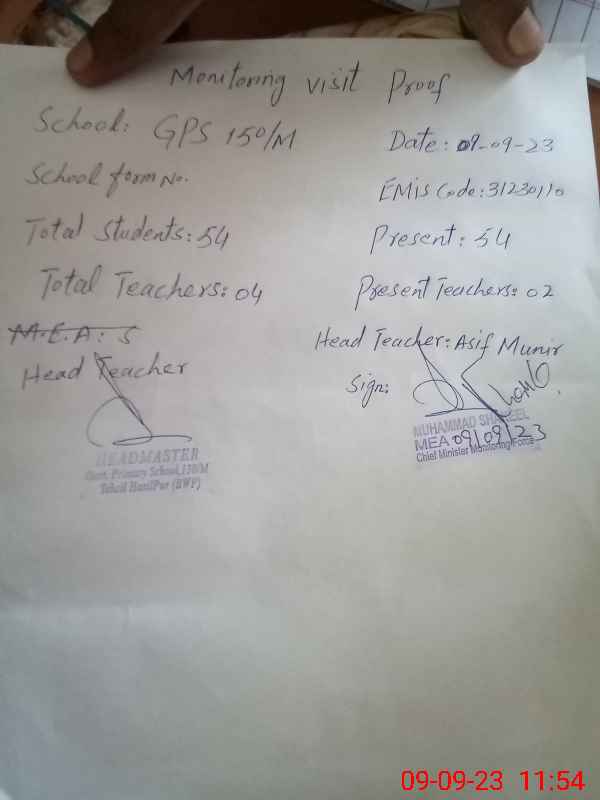 Monitoring visit Proof
School: GPS 150/M
Date: 09-09-23
School form No.
EMIS Code: 31230110
Total Students: 54
Present: 54
Total Teachers: 04
Present Teachers: 02
M.E.A: S
Head Teacher: Asif Munir
Head Teacher
Sign:
MUHAMMAD SHAKEEL
MEA 09/09/23
Chief Minister Monitoring Force
HEADMASTER
Govt. Primary School, 150/M
Tehsil HasilPur (BWP)
09-09-23 11:54